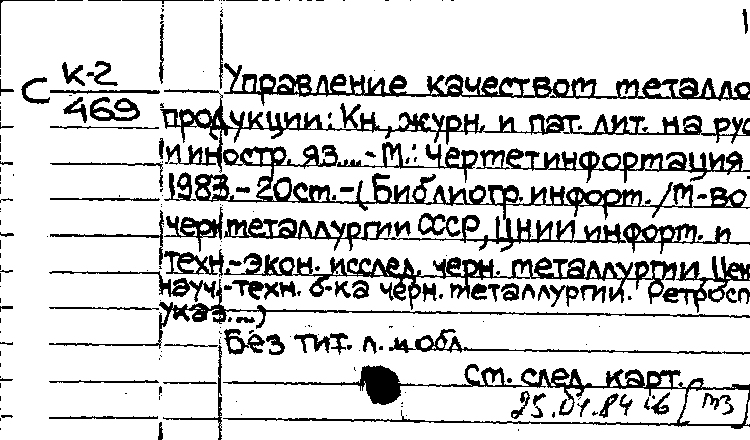 С К-2
469
Управление качеством металло
продукции: Кн., журн. и пат. лит. на рус
и иностр. яз.... - М.: Черметинформация,
1983. - 20см. - (Библиогр. информ. / М-во
черн. металлургии СССР, ЦНИИ информ. и
техн.-экон. исслед. черн. металлургии, Цен
науч.-техн. б-ка черн. металлургии. Ретросп
указ....)
Без тит. л. и обл.
См. след. карт.
25.01.84